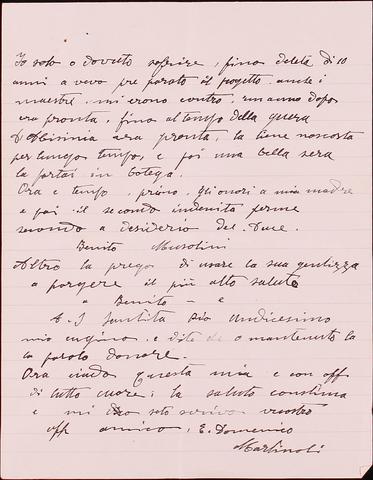 Io solo o dovuto sofrire, fino deletà di 10
anni avevo preparato il progetto. anche i
maestri mi erono contro, un anno dopo
era pronta, fino al tempo della guera
D'Abisinia era pronta, la tiene nascosta
per lungo tempo, e poi una bella sera
la portai in botega.
Ora e tempo, primo, gli onori a mia madre
e poi il secondo indenita per me
secondo a desiderio del Duce.
Benito Musolini
Altro la prego di usare la sua gentilezza
a porgere il più alto saluto
a Benito - e
S. S. Santita Pio Undicesimo
mio cugino, e dite che o mantenuto la
la parola donore.
Ora chiudo questa mia e con aff
di tutto cuore; la saluto
e mi dico scrivo vuostro
aff amico, E. Domenico
Martinoli